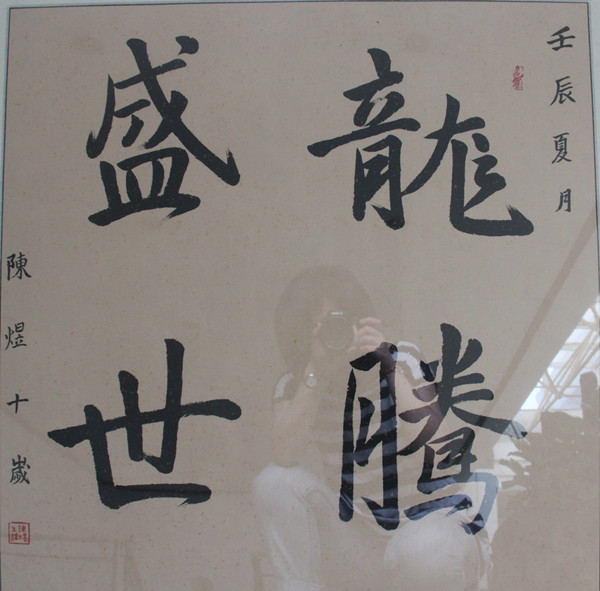 壬辰夏月
龍騰
盛世
陳煜十歲